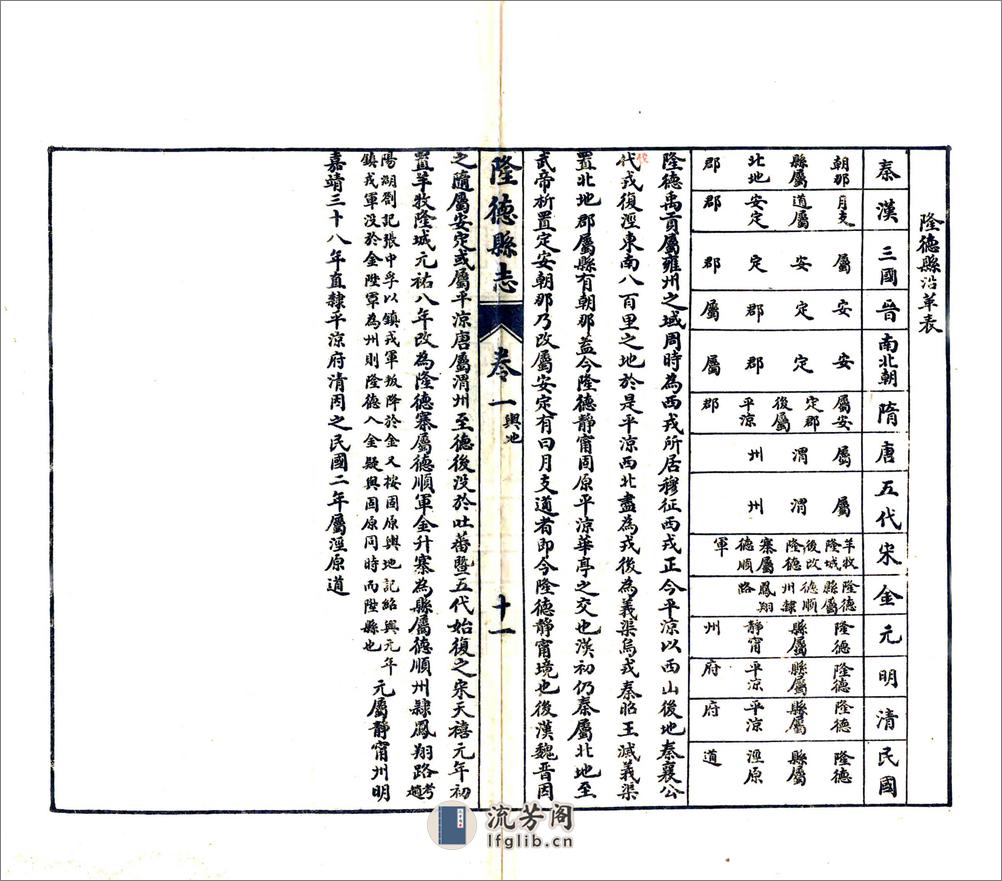 隆德縣沿革表
秦 朝那縣屬北地郡
漢 月支道屬安定郡
三國 屬安定郡
晉 安定郡屬
南北朝 安定郡屬
隋 屬安定郡後屬平涼郡
唐 屬渭州
五代 屬渭州
宋 羊牧隆城後改隆德寨屬德順軍
金 隆德縣屬德順州隸鳳翔路
元 隆德縣屬靜甯州
明 隆德縣屬平涼府
清 隆德縣屬平涼府
民國 隆德縣屬涇原道
隆德禹貢屬雍州之域周時為西戎所居穆征西戎正今平涼以西山後地秦襄公
代戎復涇東南八百里之地於是平涼西北盡為戎後為義渠烏戎秦昭王滅義渠
伐
置北地郡屬縣有朝那蓋今隆德靜甯固原平涼華亭之交也漢初仍秦屬北地至
武帝析置定安朝那乃改屬安定有曰月支道者即今隆德靜甯境也後漢魏晉因
隆德縣志 卷一 輿地 十一
之隨屬安定或屬平涼唐屬渭州至德後没於吐蕃暨五代始復之宋天禧元年初
置羊牧隆城元祐八年改為隆德寨屬德順軍金升寨為縣屬德順州隸鳳翔路考趙
陽湖劉記張中孚以鎮戎軍叛降於金又按固原輿地記紹興元年
鎮戎軍没於金陞軍為州則隆德入金疑與固原同時而陞縣也
元屬靜甯州明
嘉靖三十八年直隸平涼府清因之民國二年屬涇原道
流芳阁
lfglib.cn